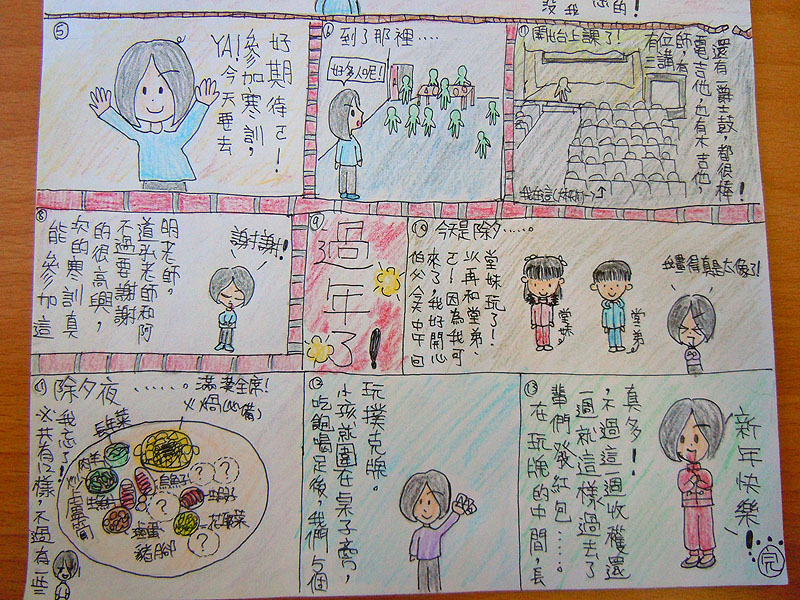 ⑤
YA!今天要去
參加寒訓,
好期待ㄛ!
⑥
到了那裡....
好多人呢!
⑦
開始上課了!
有三位講師,有
電吉他,也有木吉他,
還有爵士鼓,都很棒!
我在這
⑧
能參加這
次的寒訓真
的很高興,
不過要謝謝
道弘老師和阿
明老師。
謝謝!
⑨
過年了!
⑩
今天是除夕.....
伯父今天中午回
來了,我好開心
ㄛ!因為我可
以再和堂弟、
堂妹玩了!
堂妹
堂弟
我畫得真是太像了!
⑪
除夕夜......滿漢全席!
火鍋(必備)
長年菜
烏魚子
花椰菜
豬腳
?
?
?
?
※共有12樣,不過有一些
我忘了!
⑫
吃飽喝足後,我們5個
小孩就圍在桌子旁,
玩撲克牌。
⑬
在玩牌的中間,長
輩們發紅包....。
一週就這樣過去了
,不過這一週收穫還
真多!
新年快樂!
完